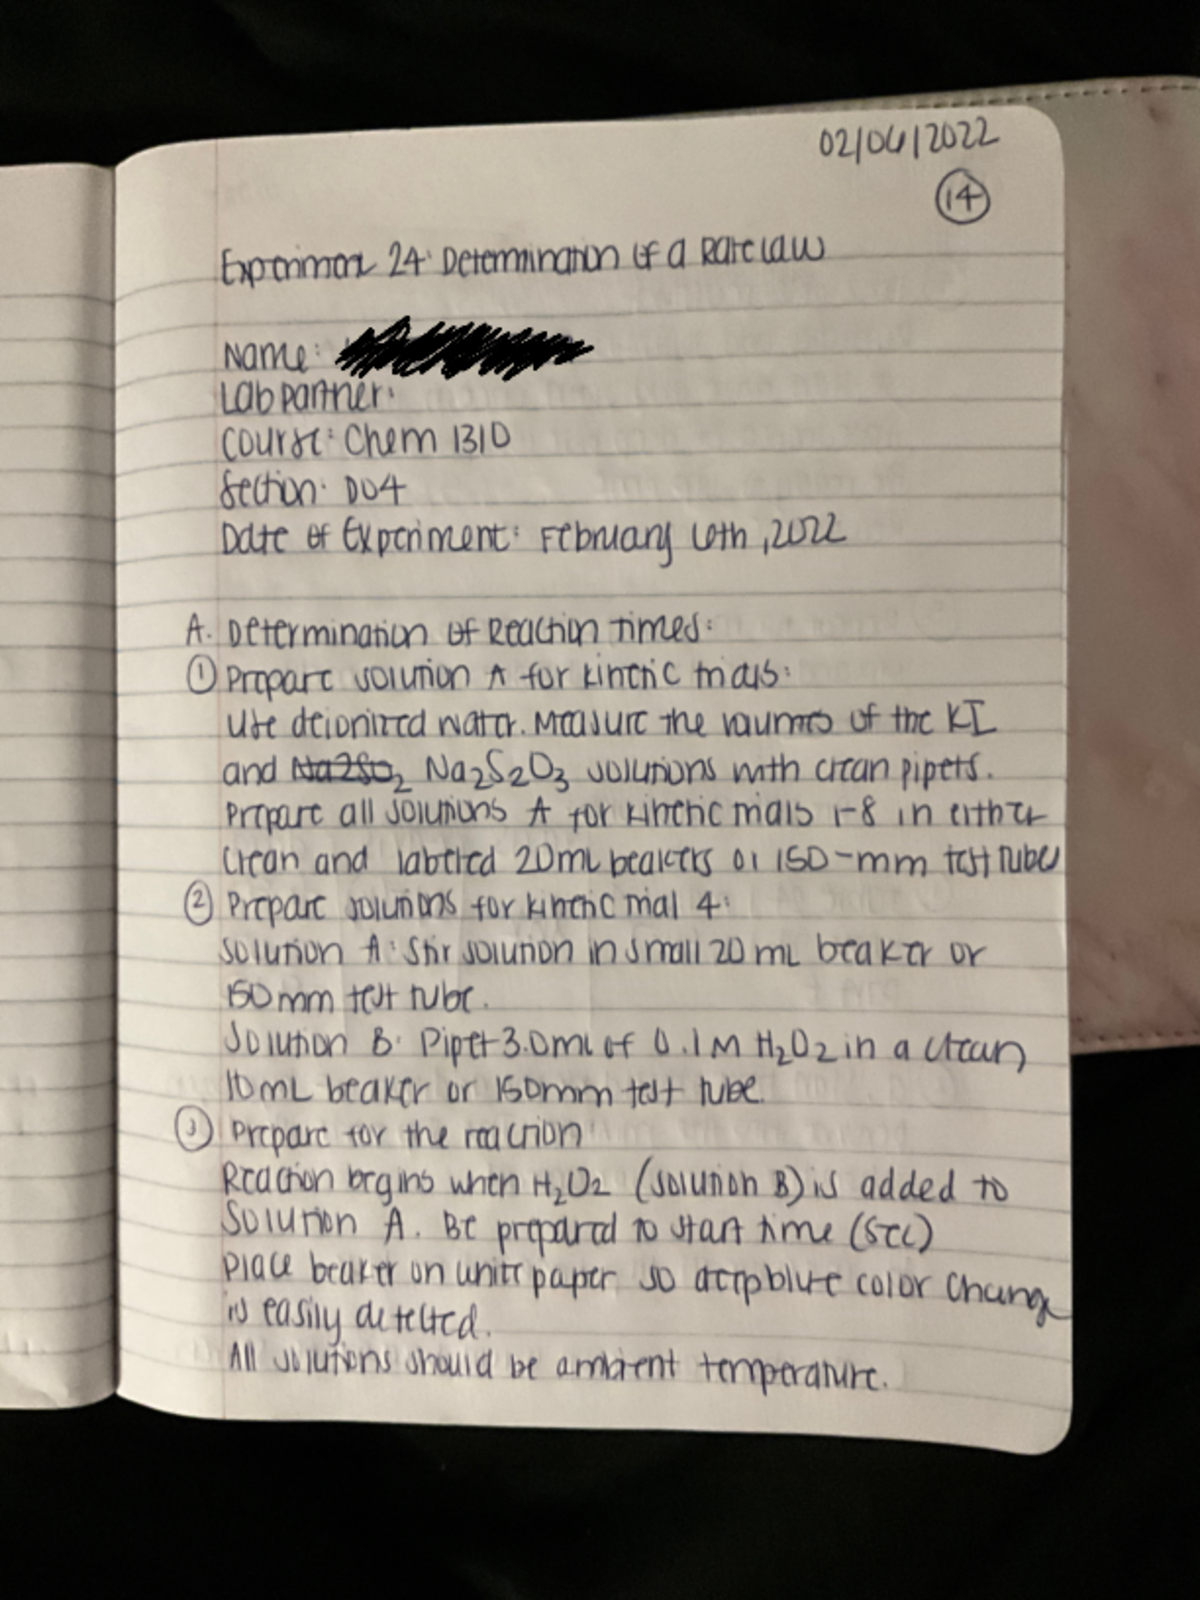 02/06/2022
14
Experiment 24: Determination of a Rate Law
Name:
Lab partner:
Course: Chem 1310
Section: D04
Date of Experiment: February 6th, 2022
A. Determination of Reaction Times:
① Prepare solution A for kinetic trials:
Use deionized water. Measure the volumes of the KI
and Na2SO2 Na2S2O3 solutions with clean pipets.
Prepare all solutions A for kinetic trials 1-8 in either
clean and labeled 20mL beakers or 150-mm test tubes
② Prepare solutions for kinetic trial 4:
Solution A: Stir solution in small 20 mL beaker or
150mm test tube.
Solution B: Pipet 3.0mL of 0.1M H2O2 in a clean,
10mL beaker or 150mm test tube.
③ Prepare for the reaction:
Reaction begins when H2O2 (solution B) is added to
Solution A. Be prepared to start time (sec)
Place beaker on white paper so deep blue color change
is easily detected.
All solutions should be ambient temperature.